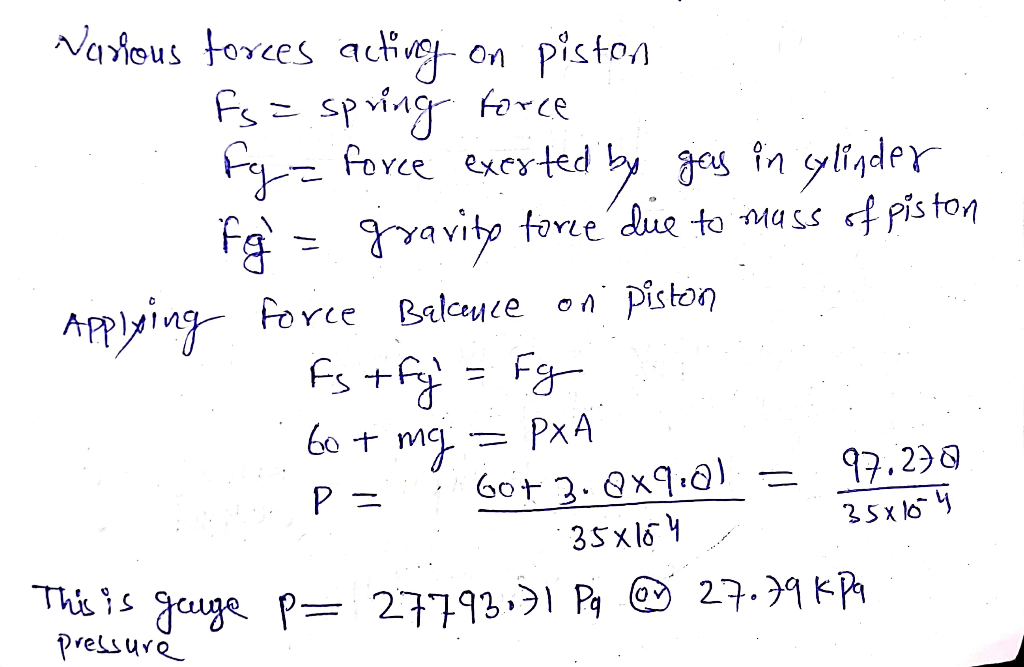 Various forces acting on piston
Fs = spring force
Fg = force exerted by gas in cylinder
Fg' = gravity force due to mass of piston
Applying force Balance on piston
Fs + Fg' = Fg
60 + mg = P×A
P = 60 + 3.8×9.81 / 35×10⁻⁴ = 97.278 / 35×10⁻⁴
This is gauge pressure P = 27793.71 Pa or 27.79 KPa